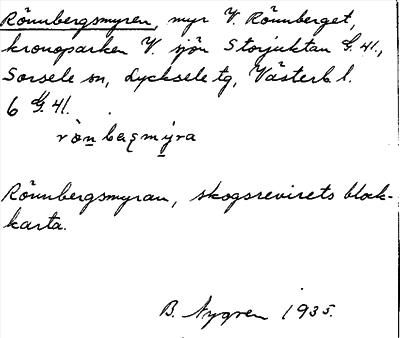 Rönnbergsmyren, myr V. Rönnberget,
kronoparken V. sjön Storjuktan G. 41.,
Sorsele sn, Lycksele tg, Västerb. l.
6 G. 41.

Rönnbergsmyran, skogsrevirets block-
karta.
B. Nygren 1935.